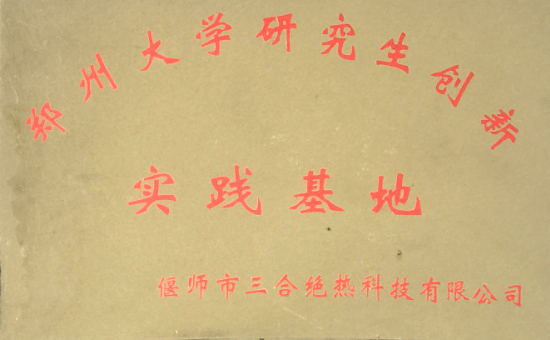 郑州大学研究生创新
实践基地
偃师市三合绝热科技有限公司